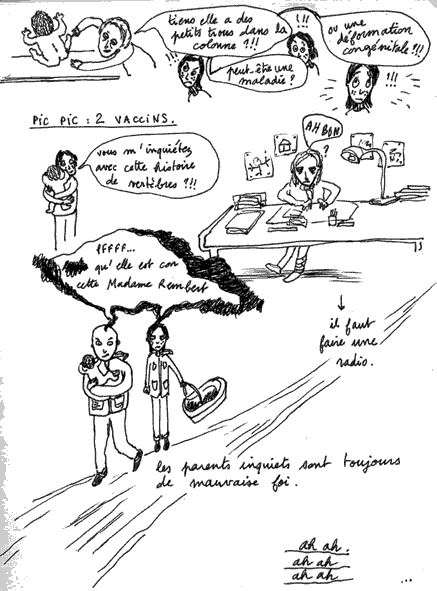 tiens elle a des
petits trous dans la
colonne ?!!!
!!!
peut-être une
maladie ?
ou une
déformation
congénitale ?!!!
!!!
PIC PIC : 2 VACCINS.
vous m'inquiétez
avec cette histoire
de vertèbres ?!!
AH BON
?
PFFFF...
qu'elle est con
cette Madame Rembert
↓
il faut
faire une
radio.
les parents inquiets sont toujours
de mauvaise foi.
ah ah.
ah ah
ah ah
...